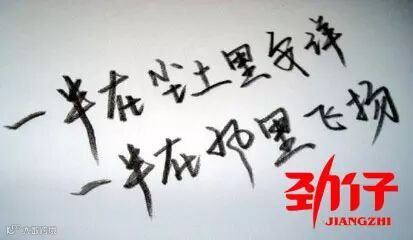 一半在尘土里安详
一半在风里飞扬
劲仔
JIANGZHI